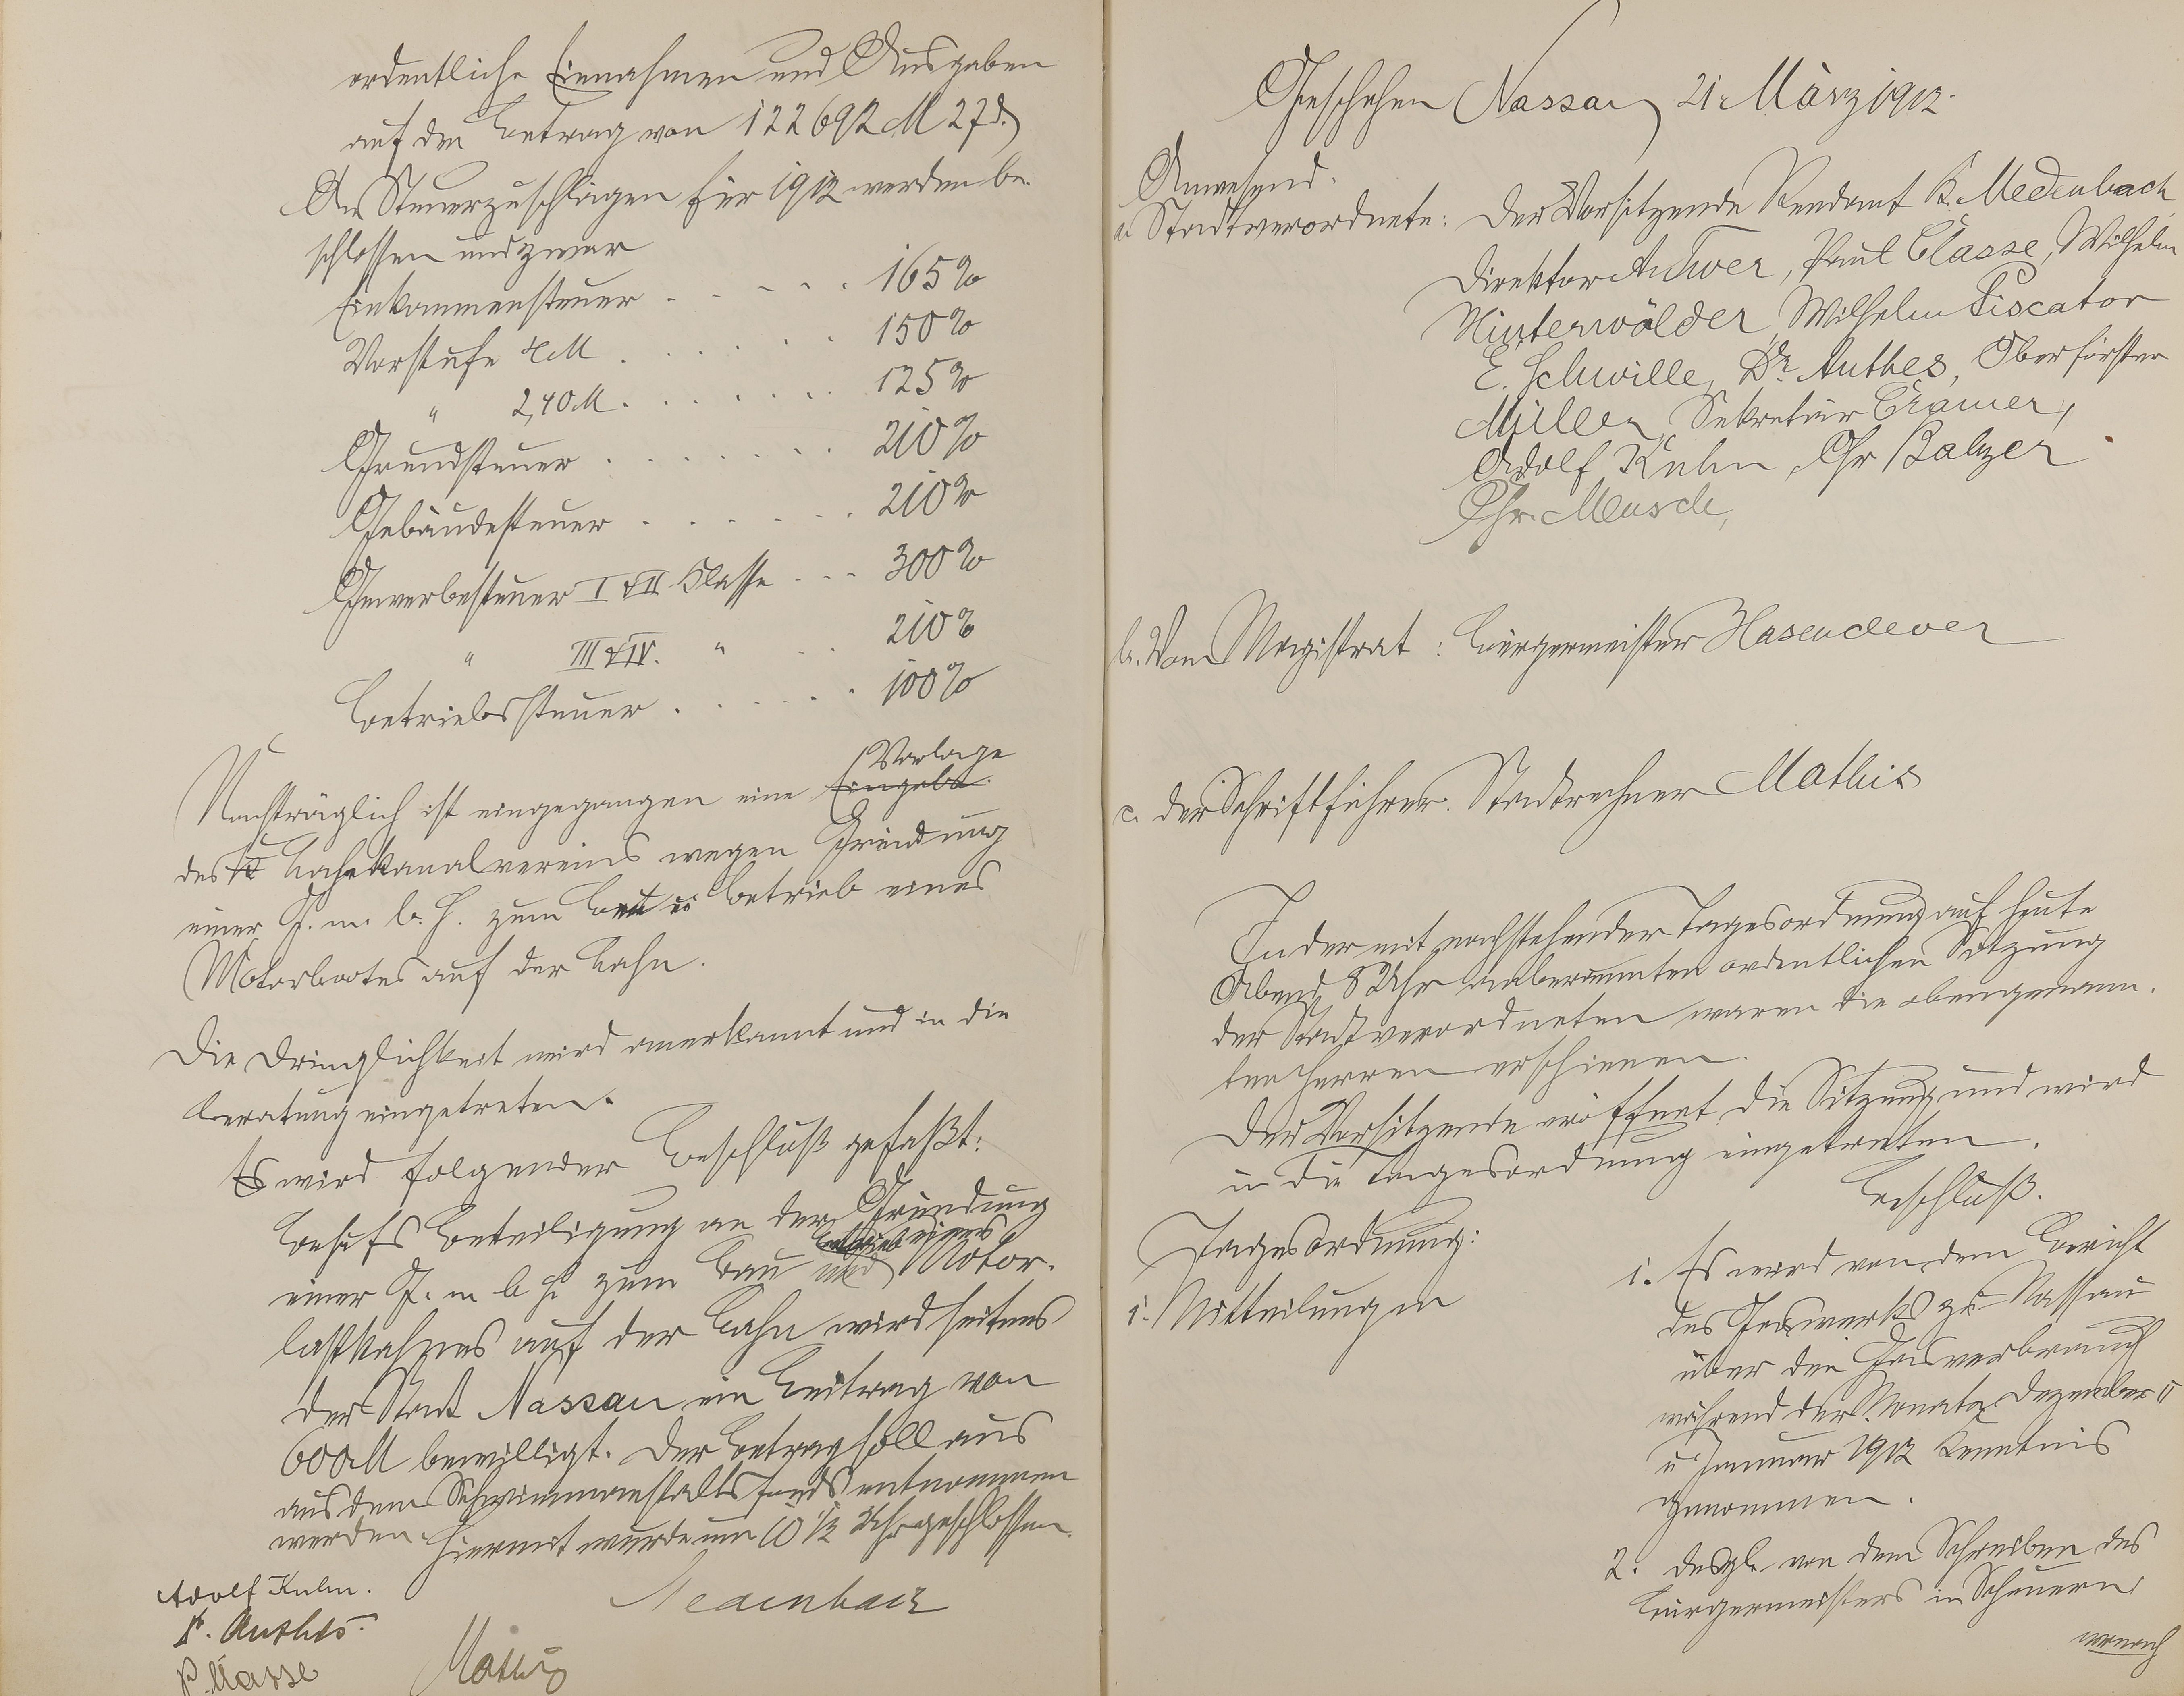 ordentliche Einnahmen und Ausgaben
auf den Betrag von 122692 M 27 d.
An Steuerzuschlägen für 1912 werden be-
schlossen und zwar
Einkommensteuer . . . . . 165%
Vorstufe 4 M . . . . . . 150%
" 2,40 M . . . . . . . 125%
Grundsteuer . . . . . . . 210%
Gebäudesteuer . . . . . . 210%
Gewerbesteuer I & II Klasse . . . 300%
" III & IV. " . . 210%
Betriebssteuer . . . . . . 100%
Vorlage
Nachträglich ist eingegangen eine Eingabe
des Lahnkanalvereins wegen Gründung
einer G. m. b. H. zum Bau u Betrieb eines
Motorbootes auf der Lahn.
Die Dringlichkeit wird anerkannt und in die
Beratung eingetreten.
Es wird folgender Beschluß gefaßt:
Behufs Beteiligung an der Gründung
Betrieb eines
einer G. m b H. zum Bau und Motor-
lastkahnes auf der Lahn wird seitens
der Stadt Nassau ein Beitrag von
600 M bewilligt. Der Betrag soll aus
aus dem Schwimmanstaltsfonds entnommen
werden. Hiermit wurde um 10 1/2 Uhr geschlossen.
Adolf Kuhn. Medenbach
Dr. Anthes.
P. Classe Mathis
Geschehen Nassau 21. März 1912.
Anwesend.
a. Stadtverordnete: Der Vorsitzende Rendant K. Medenbach
Direktor Antwer, Paul Classe, Wilhelm
Hinterwälder, Wilhelm Piscator
E. Schwille, Dr. Anthes, Oberförster
Müller, Sekretär Cramer,
Adolf Kuhn, Chr Balzer
Chr. Meusch,
b. Vom Magistrat: Bürgermeister Hasenclever
c. der Schriftführer. Stadtrechner Mathis
In der mit nachstehender Tagesordnung auf heute
Abend 8 Uhr anberaumten ordentlichen Sitzung
der Stadtverordneten waren die obengenann-
ten Herren erschienen.
Der Vorsitzende eröffnet die Sitzung und wird
in die Tagesordnung eingetreten.
Beschluß.
Tagesordnung:
1. Mitteilungen
1. Es wird von dem Bericht
des Gaswerks zu Nassau
über den Gasverbrauch
während der Monate Dezember 11
u Januar 1912 Kenntnis
genommen.
2. desgl. von dem Schreiben des
Bürgermeisters in Scheuern,
wonach